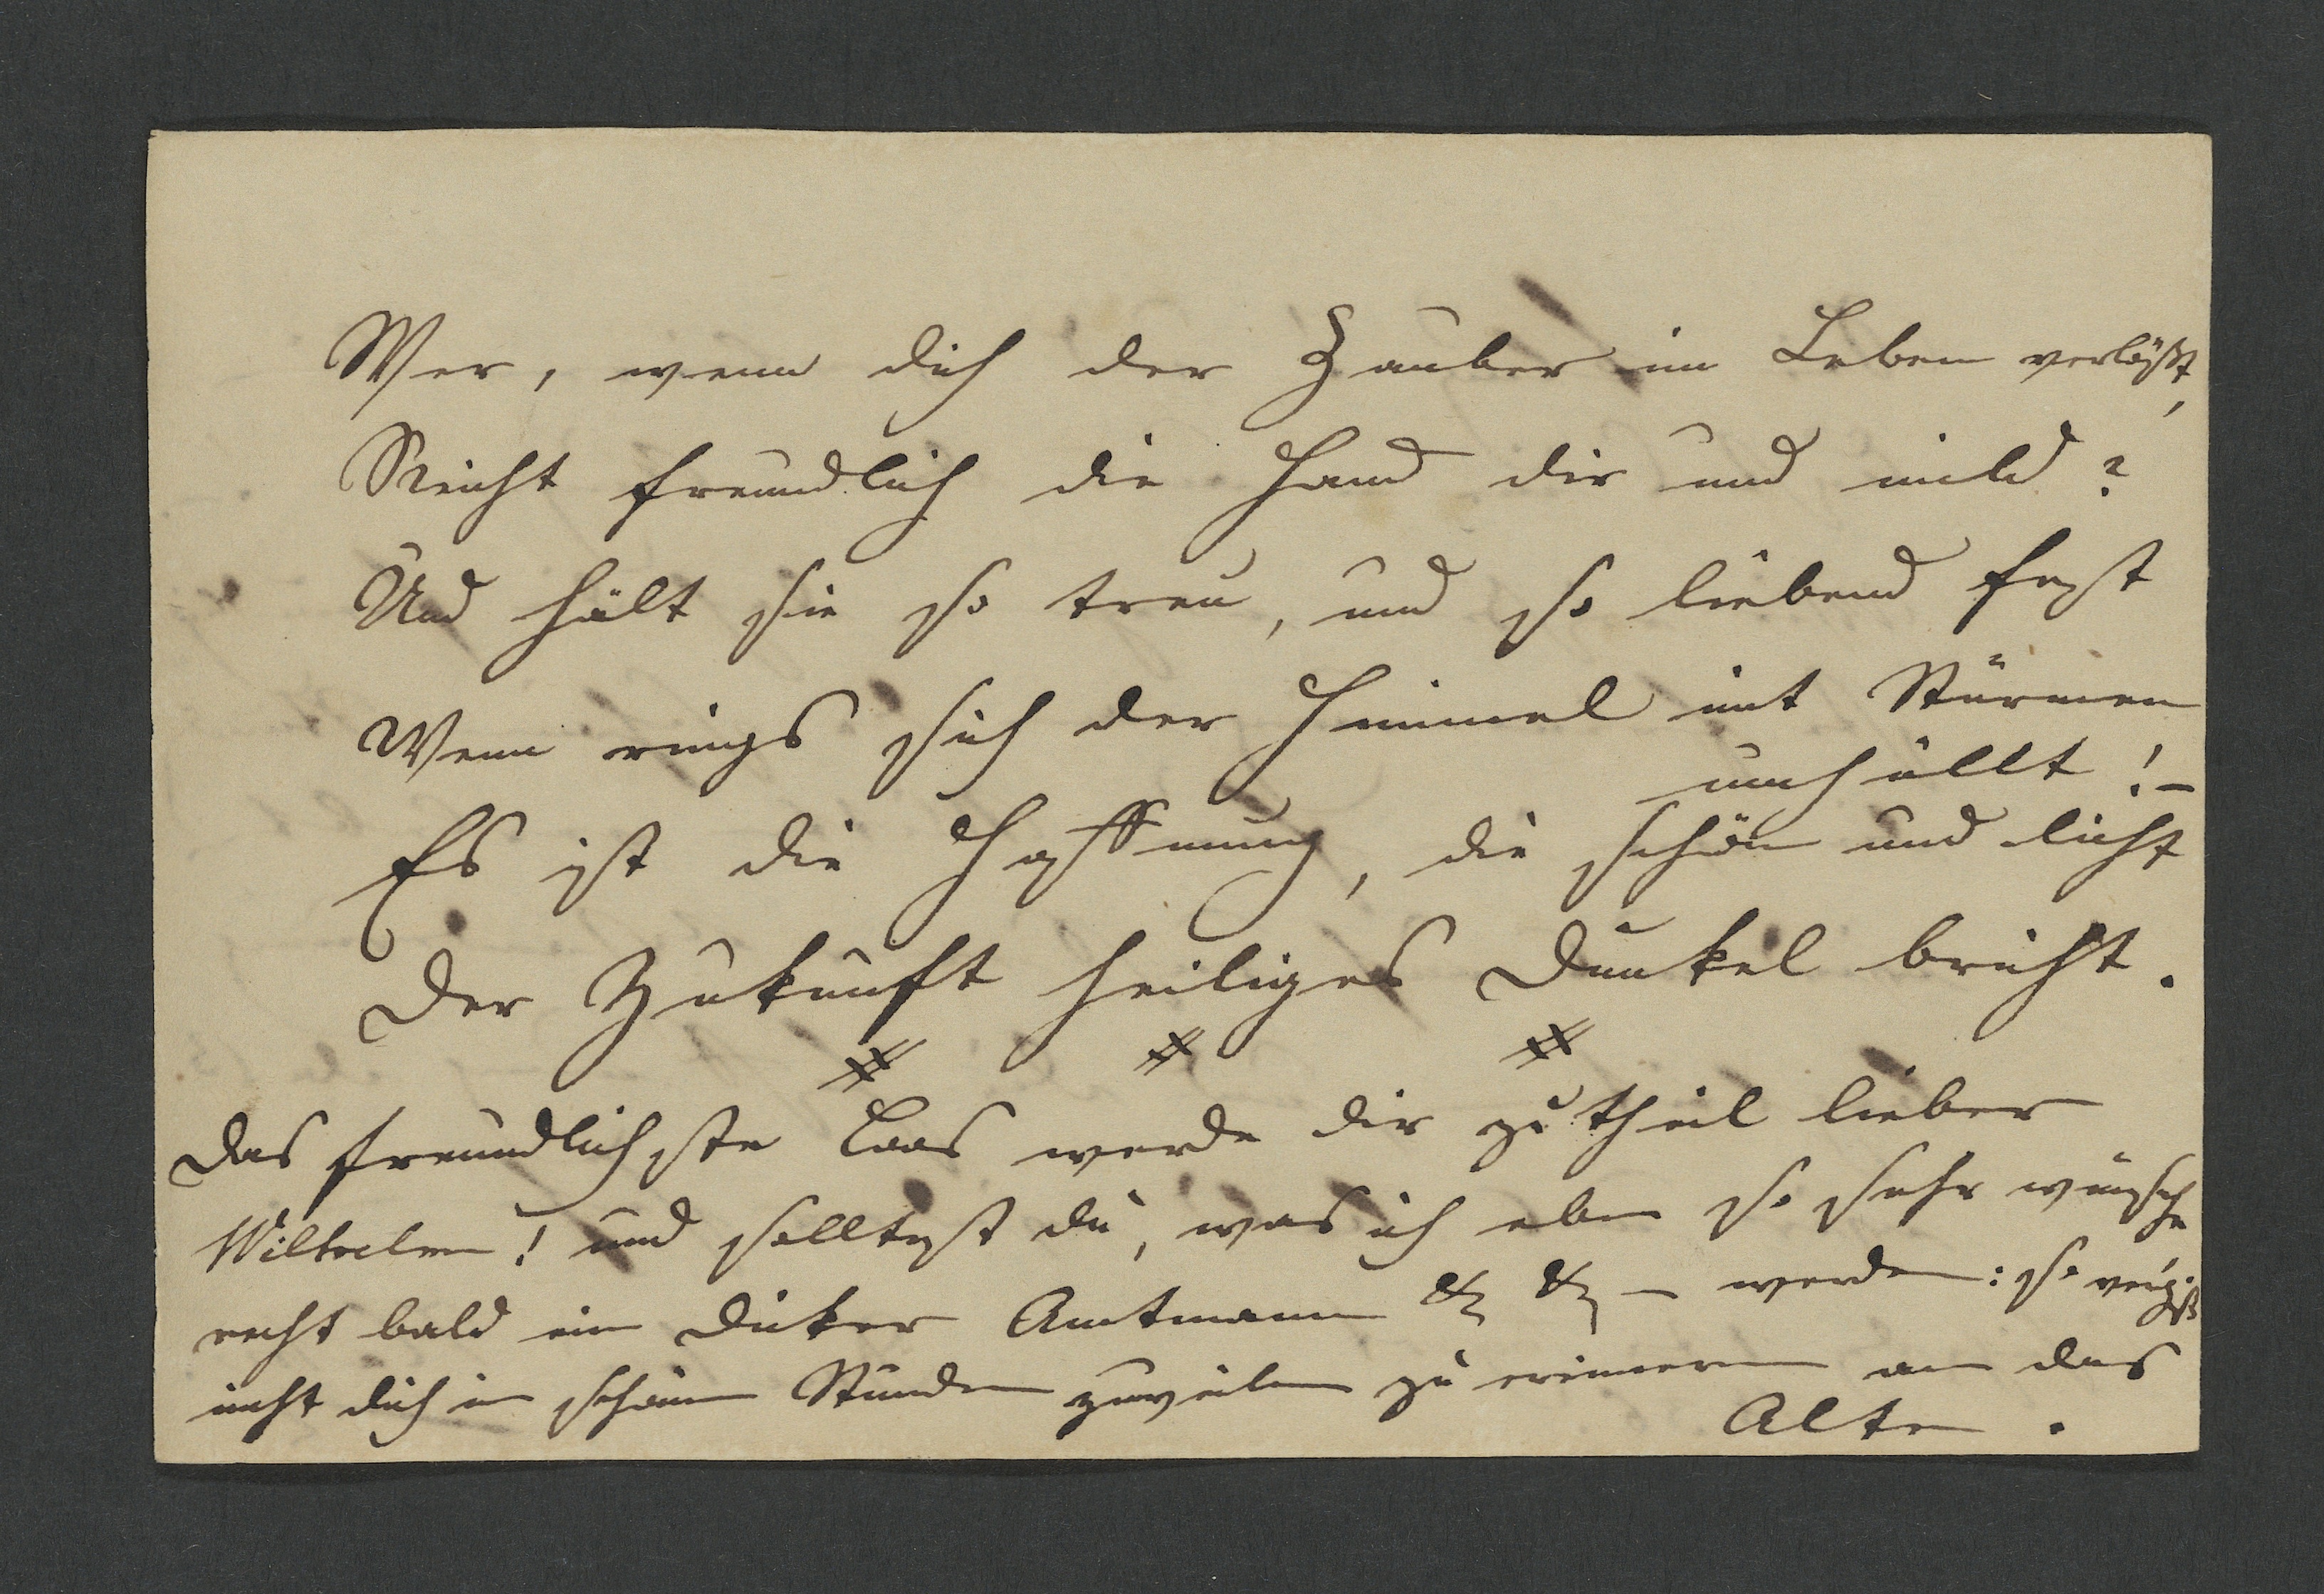 Wer, wenn dich der Zauber im Leben verläßt,
Reicht freundlich die Hand dir und mild?
Und hält sie so treu, und so liebend fest
Wenn rings sich der Himmel mit Stürmen
umhüllt! –
Es ist die Hoffnung, die schön und licht
Der Zukunft heiliges Dunkel bricht.
# # #
Das freundlichste Loos werde dir zu theil lieber
Wilhelm! und solltest du, was ich eben so sehr wünsche
recht bald ein dicker Amtmann & & – werden: so vergiß
nicht dich in schönen Stunden zuweilen zu erinnern an das
Alte.